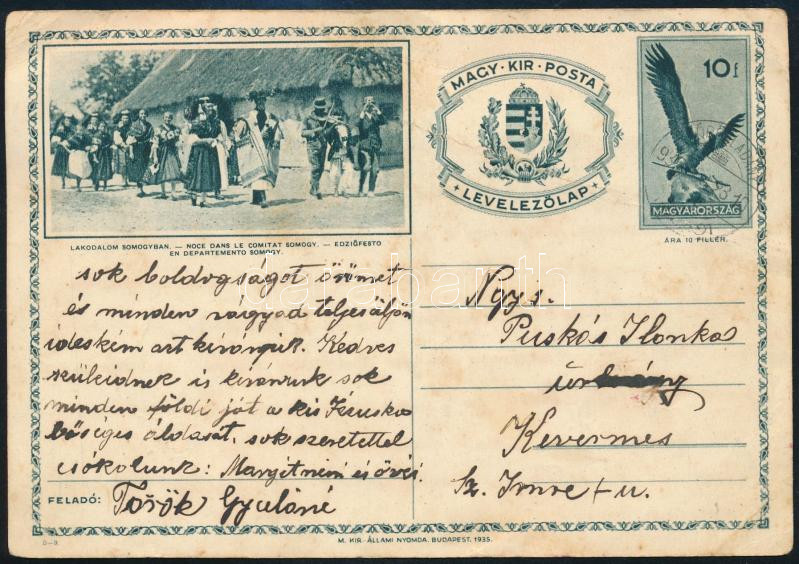 MAGY · KIR · POSTA
LEVELEZŐLAP
10 f
MAGYARORSZÁG
ÁRA 10 FILLÉR.
LAKODALOM SOMOGYBAN. — NOCE DANS LE COMITAT SOMOGY. — EDZIĜFESTO
EN DEPARTEMENTO SOMOGY.
sok boldogságot örömet
és minden vágyad teljesüljön
ideském azt kívánjuk. Kedves
szüleidnek is kívánunk sok
minden földi jót a kis Jézuska
bőséges áldását, sok szeretettel
csókolunk: Margit néni és
FELADÓ: Török Gyuláné
Puskás Ilonka
Kevermes
Sz. Imre u.
M. KIR. ÁLLAMI NYOMDA. BUDAPEST. 1935.